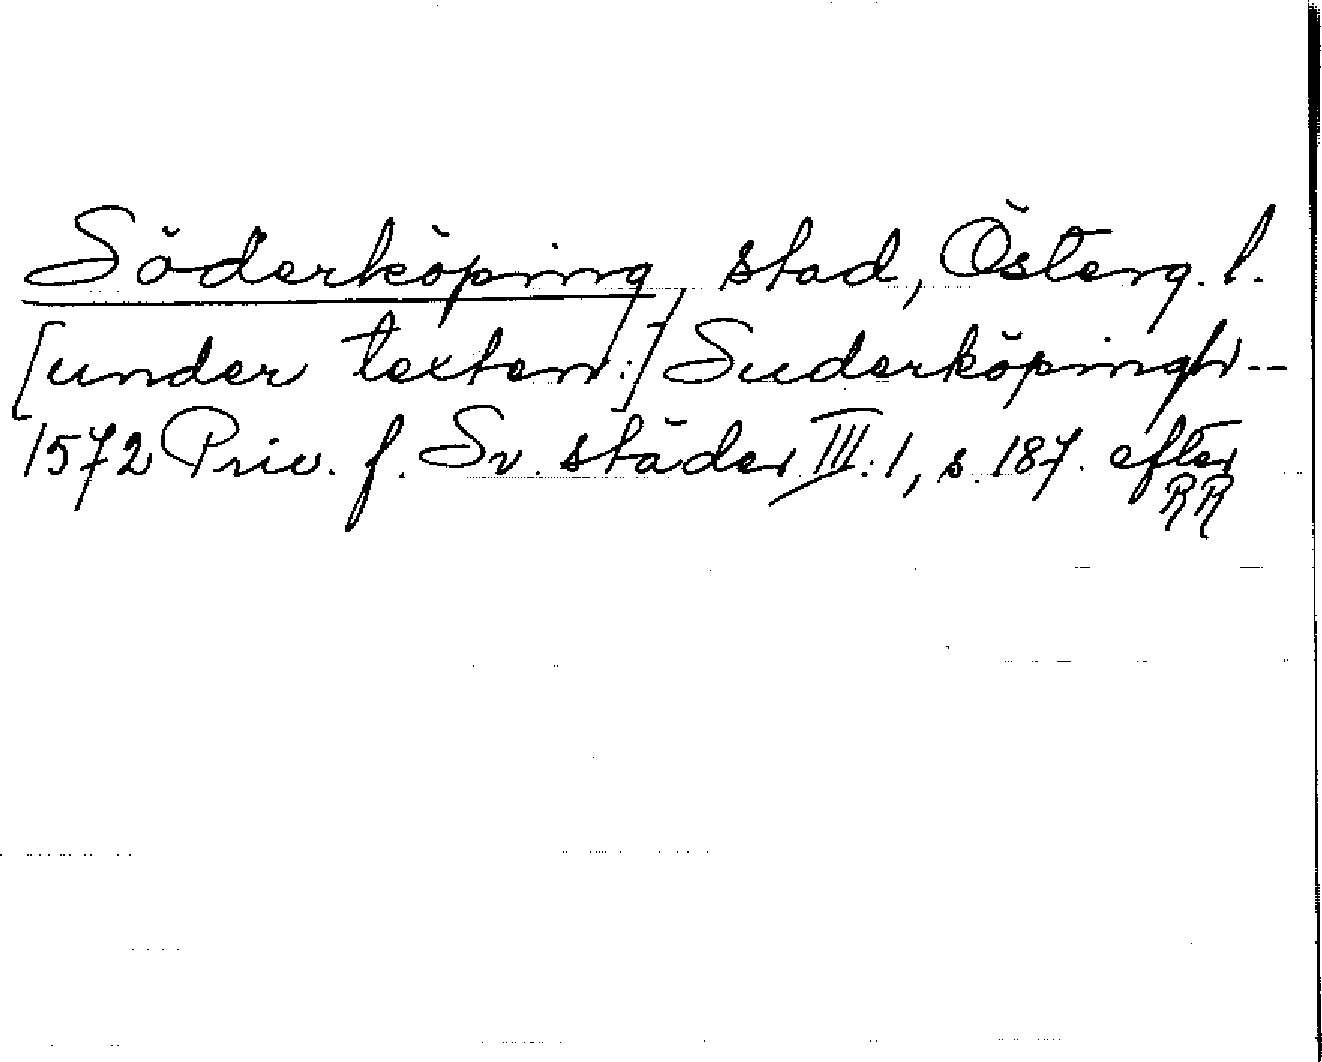 Söderköping, stad, Österg. l.
[under texten:] Suderköpingh --
1572 Priv. f. Sv. städer III:1, s. 187. efter
RR